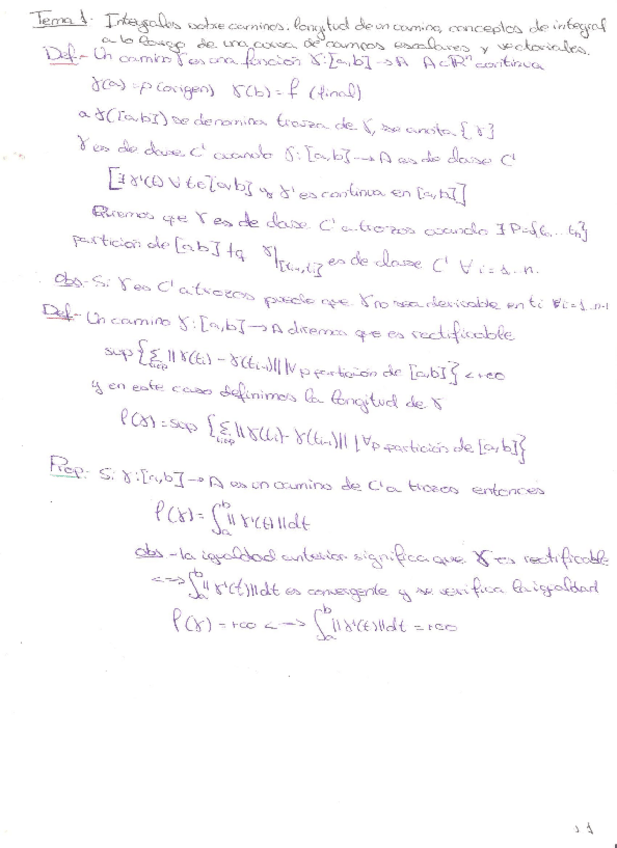 Tema 1. Integrales sobre caminos. longitud de un camino, conceptos de integral
a lo largo de una curva de campos escalares y vectoriales.
Def.- Un camino γ es una función γ:[a,b] → A A⊂ℝⁿ continua
γ(a)=p(origen) γ(b)=f (final)
a γ([a,b]) se denomina traza de γ, se anota {γ}
γ es de clase C' cuando γ:[a,b] → A es de clase C'
[∃ γ'(t) ∀ t∈[a,b] y γ' es continua en [a,b]]
Diremos que γ es de clase C' a trozos cuando ∃ P={t,... tₙ}
partición de [a,b] tq γ|[tᵢ₋₁,tᵢ] es de clase C' ∀ i=1..n.
Obs- Si γ es C' a trozos puede que γ no sea derivable en ti ∀i=1..n-1
Def- Un camino γ:[a,b] → A diremos que es rectificable
sup{Σ ||γ(tᵢ) - γ(tᵢ₋₁)|| |∀p partición de [a,b]} < +∞
y en este caso definimos la longitud de γ
l(γ)=sup {Σ ||γ(tᵢ)- γ(tᵢ₋₁)|| | ∀p partición de [a,b]}
Prop- Si γ:[a,b] → A es un camino de C' a trozos entonces
l(γ)=∫ₐᵇ ||γ'(t)||dt
obs - la igualdad anterior significa que γ es rectificable
<--> ∫ₐᵇ ||γ'(t)||dt es convergente y se verifica la igualdad
l(γ)=+∞ <--> ∫ₐᵇ ||γ'(t)||dt=+∞
1